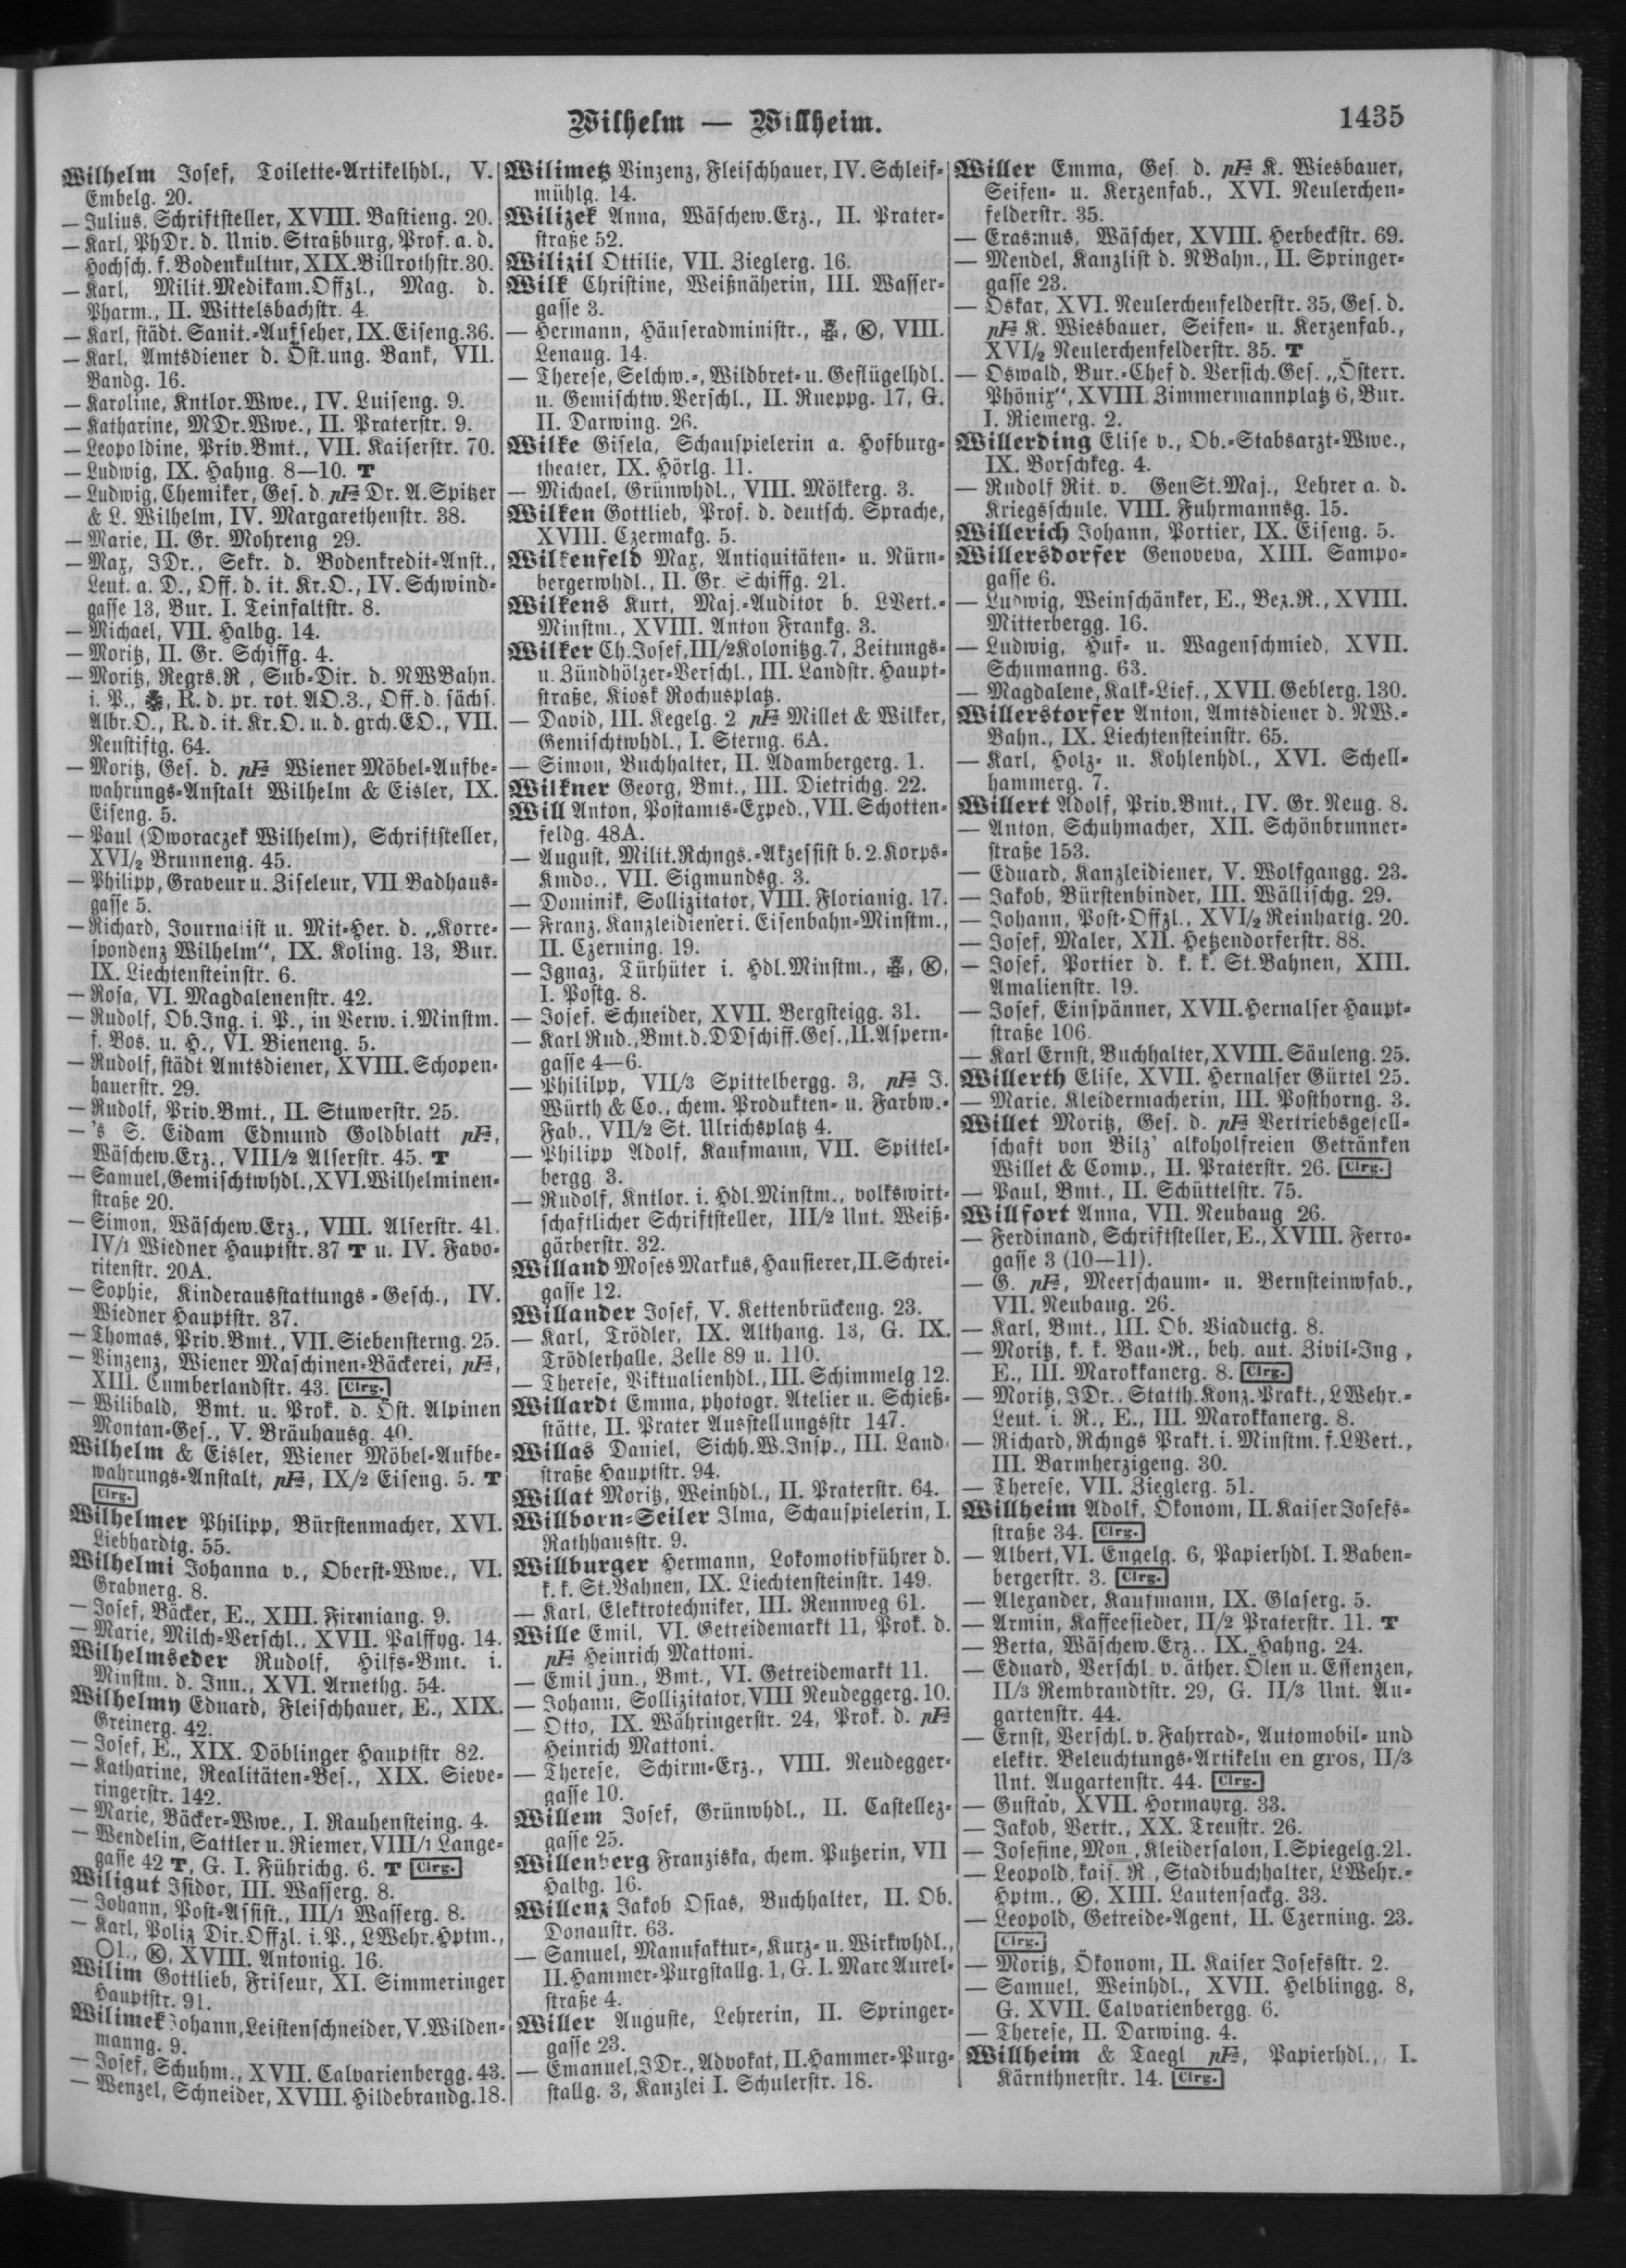 Wilhelm — Willheim.
1435
Wilhelm Josef, Toilette-Artikelhdl., V.
Embelg. 20.
— Julius, Schriftsteller, XVIII. Bastieng. 20.
— Karl, PhDr. d. Univ. Straßburg, Prof. a. d.
Hochsch. f. Bodenkultur, XIX. Billrothstr. 30.
— Karl, Milit.Medikam.Offzl., Mag. d.
Pharm., II. Wittelsbachstr. 4.
— Karl, städt. Sanit.-Aufseher, IX. Eiseng. 36.
— Karl, Amtsdiener d. Öst.ung. Bank, VII.
Bandg. 16.
— Karoline, Kntlor.Wwe., IV. Luiseng. 9.
— Katharine, MDr.Wwe., II. Praterstr. 9.
— Leopoldine, Priv.Bmt., VII. Kaiserstr. 70.
— Ludwig, IX. Hahng. 8—10. T
— Ludwig, Chemiker, Ges. d. pFa Dr. A. Spitzer
& L. Wilhelm, IV. Margarethenstr. 38.
— Marie, II. Gr. Mohreng 29.
— Max, JDr., Sekr. d. Bodenkredit-Anst.,
Leut. a. D., Off. d. it. Kr.O., IV. Schwind-
gasse 13, Bur. I. Teinfaltstr. 8.
— Michael, VII. Halbg. 14.
— Moritz, II. Gr. Schiffg. 4.
— Moritz, Regrs.R , Sub-Dir. d. NWBahn.
i. P., R. d. pr. rot. AO.3., Off. d. sächs.
Albr.O., R. d. it. Kr.O. u. d. grch. EO., VII.
Neustiftg. 64.
— Moritz, Ges. d. pFa Wiener Möbel-Aufbe-
wahrungs-Anstalt Wilhelm & Eisler, IX.
Eiseng. 5.
— Paul (Dworaczek Wilhelm), Schriftsteller,
XVI/2 Brunneng. 45.
— Philipp, Graveur u. Ziseleur, VII Badhaus-
gasse 5.
— Richard, Journalist u. Mit-Her. d. „Korre-
spondenz Wilhelm“, IX. Koling. 13, Bur.
IX. Liechtensteinstr. 6.
— Rosa, VI. Magdalenenstr. 42.
— Rudolf, Ob.Ing. i. P., in Verw. i. Minstm.
f. Bos. u. H., VI. Bieneng. 5.
— Rudolf, städt Amtsdiener, XVIII. Schopen-
hauerstr. 29.
— Rudolf, Priv.Bmt., II. Stuwerstr. 25.
— 's S. Eidam Edmund Goldblatt pFa,
Wäschew.Erz., VIII/2 Alserstr. 45. T
— Samuel, Gemischtwhdl., XVI. Wilhelminen-
straße 20.
— Simon, Wäschew.Erz., VIII. Alserstr. 41.
IV/1 Wiedner Hauptstr. 37 T u. IV. Favo-
ritenstr. 20A.
— Sophie, Kinderausstattungs-Gesch., IV.
Wiedner Hauptstr. 37.
— Thomas, Priv.Bmt., VII. Siebensterng. 25.
— Vinzenz, Wiener Maschinen-Bäckerei, pFa,
XIII. Cumberlandstr. 43. Clrg.
— Wilibald, Bmt. u. Prok. d. Öst. Alpinen
Montan-Ges., V. Bräuhausg. 40.
Wilhelm & Eisler, Wiener Möbel-Aufbe-
wahrungs-Anstalt, pFa, IX/2 Eiseng. 5. T
Clrg.
Wilhelmer Philipp, Bürstenmacher, XVI.
Liebhardtg. 55.
Wilhelmi Johanna v., Oberst-Wwe., VI.
Grabnerg. 8.
— Josef, Bäcker, E., XIII. Firmiang. 9.
— Marie, Milch-Verschl., XVII. Palffyg. 14.
Wilhelmseder Rudolf, Hilfs-Bmt. i.
Minstm. d. Inn., XVI. Arnethg. 54.
Wilhelmy Eduard, Fleischhauer, E., XIX.
Greinerg. 42.
— Josef, E., XIX. Döblinger Hauptstr 82.
— Katharine, Realitäten-Bes., XIX. Sieve-
ringerstr. 142.
— Marie, Bäcker-Wwe., I. Rauhensteing. 4.
— Wendelin, Sattler u. Riemer, VIII/1 Lange-
gasse 42 T, G. I. Führichg. 6. T Clrg.
Wiligut Isidor, III. Wasserg. 8.
— Johann, Post-Assist., III/1 Wasserg. 8.
— Karl, Poliz Dir.Offzl. i. P., LWehr.Hptm.,
O1., K, XVIII. Antonig. 16.
Wilim Gottlieb, Friseur, XI. Simmeringer
Hauptstr. 91.
Wilimek Johann, Leistenschneider, V. Wilden-
manng. 9.
— Josef, Schuhm., XVII. Calvarienbergg. 43.
— Wenzel, Schneider, XVIII. Hildebrandg. 18.
Wilimetz Vinzenz, Fleischhauer, IV. Schleif-
mühlg. 14.
Wilizek Anna, Wäschew.Erz., II. Prater-
straße 52.
Wilizil Ottilie, VII. Zieglerg. 16.
Wilk Christine, Weißnäherin, III. Wasser-
gasse 3.
— Hermann, Häuseradministr., K, VIII.
Lenaug. 14.
— Therese, Selchw.-, Wildbret- u. Geflügelhdl.
u. Gemischtw.Verschl., II. Rueppg. 17, G.
II. Darwing. 26.
Wilke Gisela, Schauspielerin a. Hofburg-
theater, IX. Hörlg. 11.
— Michael, Grünwhdl., VIII. Mölkerg. 3.
Wilken Gottlieb, Prof. d. deutsch. Sprache,
XVIII. Czermakg. 5.
Wilkenfeld Max, Antiquitäten- u. Nürn-
bergerwhdl., II. Gr. Schiffg. 21.
Wilkens Kurt, Maj.-Auditor b. LVert.-
Minstm., XVIII. Anton Frankg. 3.
Wilker Ch. Josef, III/2 Kolonitzg. 7, Zeitungs-
u. Zündhölzer-Verschl., III. Landstr. Haupt-
straße, Kiosk Rochusplatz.
— David, III. Kegelg. 2 pFa Millet & Wilker,
Gemischtwhdl., I. Sterng. 6A.
— Simon, Buchhalter, II. Adambergerg. 1.
Wilkner Georg, Bmt., III. Dietrichg. 22.
Will Anton, Postamts-Exped., VII. Schotten-
feldg. 48A.
— August, Milit.Rchngs.-Akzessist b. 2. Korps-
Kmdo., VII. Sigmundsg. 3.
— Dominik, Sollizitator, VIII. Florianig. 17.
— Franz, Kanzleidiener i. Eisenbahn-Minstm.,
II. Czerning. 19.
— Ignaz, Türhüter i. Hdl.Minstm., K,
I. Postg. 8.
— Josef, Schneider, XVII. Bergsteigg. 31.
— Karl Rud., Bmt. d. DDschiff.Ges., II. Aspern-
gasse 4—6.
— Phililpp, VII/3 Spittelbergg. 3, pFa J.
Würth & Co., chem. Produkten- u. Farbw.-
Fab., VII/2 St. Ulrichsplatz 4.
— Philipp Adolf, Kaufmann, VII. Spittel-
bergg 3.
— Rudolf, Kntlor. i. Hdl.Minstm., volkswirt-
schaftlicher Schriftsteller, III/2 Unt. Weiß-
gärberstr. 32.
Willand Moses Markus, Hausierer, II. Schrei-
gasse 12.
Willander Josef, V. Kettenbrückeng. 23.
— Karl, Trödler, IX. Althang. 13, G. IX.
Trödlerhalle, Zelle 89 u. 110.
— Therese, Viktualienhdl., III. Schimmelg 12.
Willardt Emma, photogr. Atelier u. Schieß-
stätte, II. Prater Ausstellungsstr 147.
Willas Daniel, Sichh.W.Insp., III. Land-
straße Hauptstr. 94.
Willat Moritz, Weinhdl., II. Praterstr. 64.
Willborn-Seiler Ilma, Schauspielerin, I.
Rathhausstr. 9.
Willburger Hermann, Lokomotivführer d.
k. k. St.Bahnen, IX. Liechtensteinstr. 149.
— Karl, Elektrotechniker, III. Rennweg 61.
Wille Emil, VI. Getreidemarkt 11, Prok. d.
pFa Heinrich Mattoni.
— Emil jun., Bmt., VI. Getreidemarkt 11.
— Johann, Sollizitator, VIII Neudeggerg. 10.
— Otto, IX. Währingerstr. 24, Prok. d. pFa
Heinrich Mattoni.
— Therese, Schirm-Erz., VIII. Neudegger-
gasse 10.
Willem Josef, Grünwhdl., II. Castellez-
gasse 25.
Willenberg Franziska, chem. Putzerin, VII
Halbg. 16.
Willenz Jakob Osias, Buchhalter, II. Ob.
Donaustr. 63.
— Samuel, Manufaktur-, Kurz- u. Wirkwhdl.,
II. Hammer-Purgstallg. 1, G. I. Marc Aurel-
straße 4.
Willer Auguste, Lehrerin, II. Springer-
gasse 23.
— Emanuel, JDr., Advokat, II. Hammer-Purg-
stallg. 3, Kanzlei I. Schulerstr. 18.
Willer Emma, Ges. d. pFa K. Wiesbauer,
Seifen- u. Kerzenfab., XVI. Neulerchen-
felderstr. 35.
— Erasmus, Wäscher, XVIII. Herbeckstr. 69.
— Mendel, Kanzlist d. NBahn., II. Springer-
gasse 23.
— Oskar, XVI. Neulerchenfelderstr. 35, Ges. d.
pFa K. Wiesbauer, Seifen- u. Kerzenfab.,
XVI/2 Neulerchenfelderstr. 35. T
— Oswald, Bur.-Chef d. Versich.Ges. „Österr.
Phönix“, XVIII. Zimmermannplatz 6, Bur.
I. Riemerg. 2.
Willerding Elise v., Ob.-Stabsarzt-Wwe.,
IX. Borschkeg. 4.
— Rudolf Rit. v. GenSt.Maj., Lehrer a. d.
Kriegsschule, VIII. Fuhrmannsg. 15.
Willerich Johann, Portier, IX. Eiseng. 5.
Willersdorfer Genoveva, XIII. Sampo-
gasse 6.
— Ludwig, Weinschänker, E., Bez.R., XVIII.
Mitterbergg. 16.
— Ludwig, Huf- u. Wagenschmied, XVII.
Schumanng. 63.
— Magdalene, Kalk-Lief., XVII. Geblerg. 130.
Willerstorfer Anton, Amtsdiener d. NW.-
Bahn., IX. Liechtensteinstr. 65.
— Karl, Holz- u. Kohlenhdl., XVI. Schell-
hammerg. 7.
Willert Adolf, Priv.Bmt., IV. Gr. Neug. 8.
— Anton, Schuhmacher, XII. Schönbrunner-
straße 153.
— Eduard, Kanzleidiener, V. Wolfgangg. 23.
— Jakob, Bürstenbinder, III. Wällischg. 29.
— Johann, Post-Offzl., XVI/2 Reinhartg. 20.
— Josef, Maler, XII. Hetzendorferstr. 88.
— Josef, Portier d. k. k. St.Bahnen, XIII.
Amalienstr. 19.
— Josef, Einspänner, XVII. Hernalser Haupt-
straße 106.
— Karl Ernst, Buchhalter, XVIII. Säuleng. 25.
Willerth Elise, XVII. Hernalser Gürtel 25.
— Marie, Kleidermacherin, III. Posthorng. 3.
Willet Moritz, Ges. d. pFa Vertriebsgesell-
schaft von Bilz' alkoholfreien Getränken
Willet & Comp., II. Praterstr. 26. Clrg.
— Paul, Bmt., II. Schüttelstr. 75.
Willfort Anna, VII. Neubaug 26.
— Ferdinand, Schriftsteller, E., XVIII. Ferro-
gasse 3 (10—11).
— G. pFa, Meerschaum- u. Bernsteinwfab.,
VII. Neubaug. 26.
— Karl, Bmt., III. Ob. Viaductg. 8.
— Moritz, k. k. Bau-R., beh. aut. Zivil-Ing ,
E., III. Marokkanerg. 8. Clrg.
— Moritz, JDr., Statth.Konz.Prakt., LWehr.-
Leut. i. R., E., III. Marokkanerg. 8.
— Richard, Rchngs Prakt. i. Minstm. f. LVert.,
III. Barmherzigeng. 30.
— Therese, VII. Zieglerg. 51.
Willheim Adolf, Ökonom, II. Kaiser Josefs-
straße 34. Clrg.
— Albert, VI. Engelg. 6, Papierhdl. I. Baben-
bergerstr. 3. Clrg.
— Alexander, Kaufmann, IX. Glaserg. 5.
— Armin, Kaffeesieder, II/2 Praterstr. 11. T
— Berta, Wäschew.Erz., IX. Hahng. 24.
— Eduard, Verschl. v. äther. Ölen u. Essenzen,
II/3 Rembrandtstr. 29, G. II/3 Unt. Au-
gartenstr. 44.
— Ernst, Verschl. v. Fahrrad-, Automobil- und
elektr. Beleuchtungs-Artikeln en gros, II/3
Unt. Augartenstr. 44. Clrg.
— Gustav, XVII. Hormayrg. 33.
— Jakob, Vertr., XX. Treustr. 26.
— Josefine, Mon., Kleidersalon, I. Spiegelg. 21.
— Leopold, kais. R., Stadtbuchhalter, LWehr.-
Hptm., K, XIII. Lautensackg. 33.
— Leopold, Getreide-Agent, II. Czerning. 23.
Clrg.
— Moritz, Ökonom, II. Kaiser Josefsstr. 2.
— Samuel, Weinhdl., XVII. Helblingg. 8,
G. XVII. Calvarienbergg. 6.
— Therese, II. Darwing. 4.
Willheim & Taegl pFa, Papierhdl., I.
Kärnthnerstr. 14. Clrg.